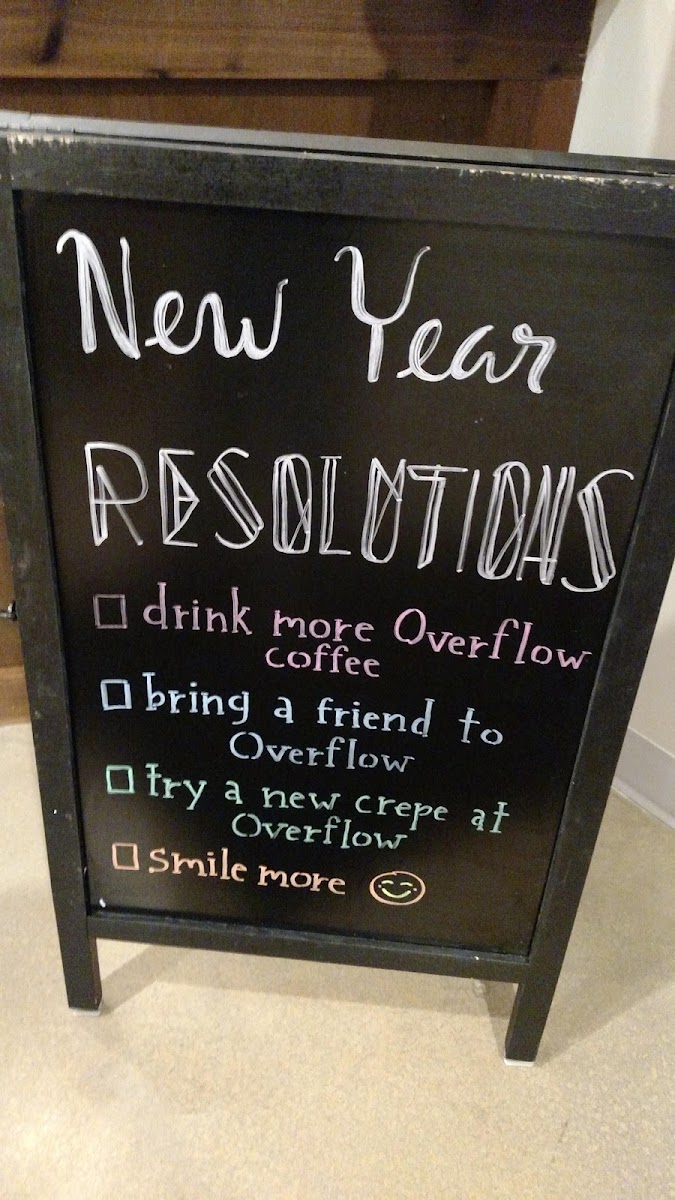 New Year
RESOLUTIONS
drink more Overflow
coffee
bring a friend to
Overflow
try a new crepe at
Overflow
smile more